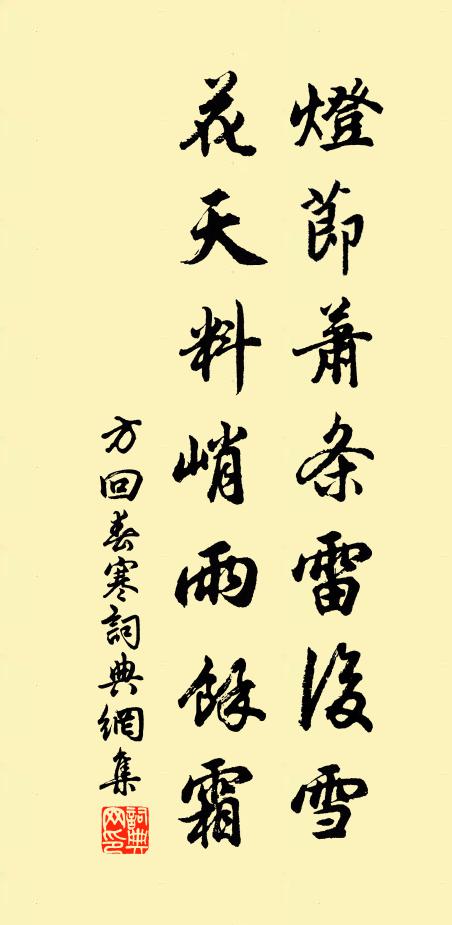 燈節蕭条雷後雪
花天料峭雨餘霜
方回春寒詞典網集
詞典網印